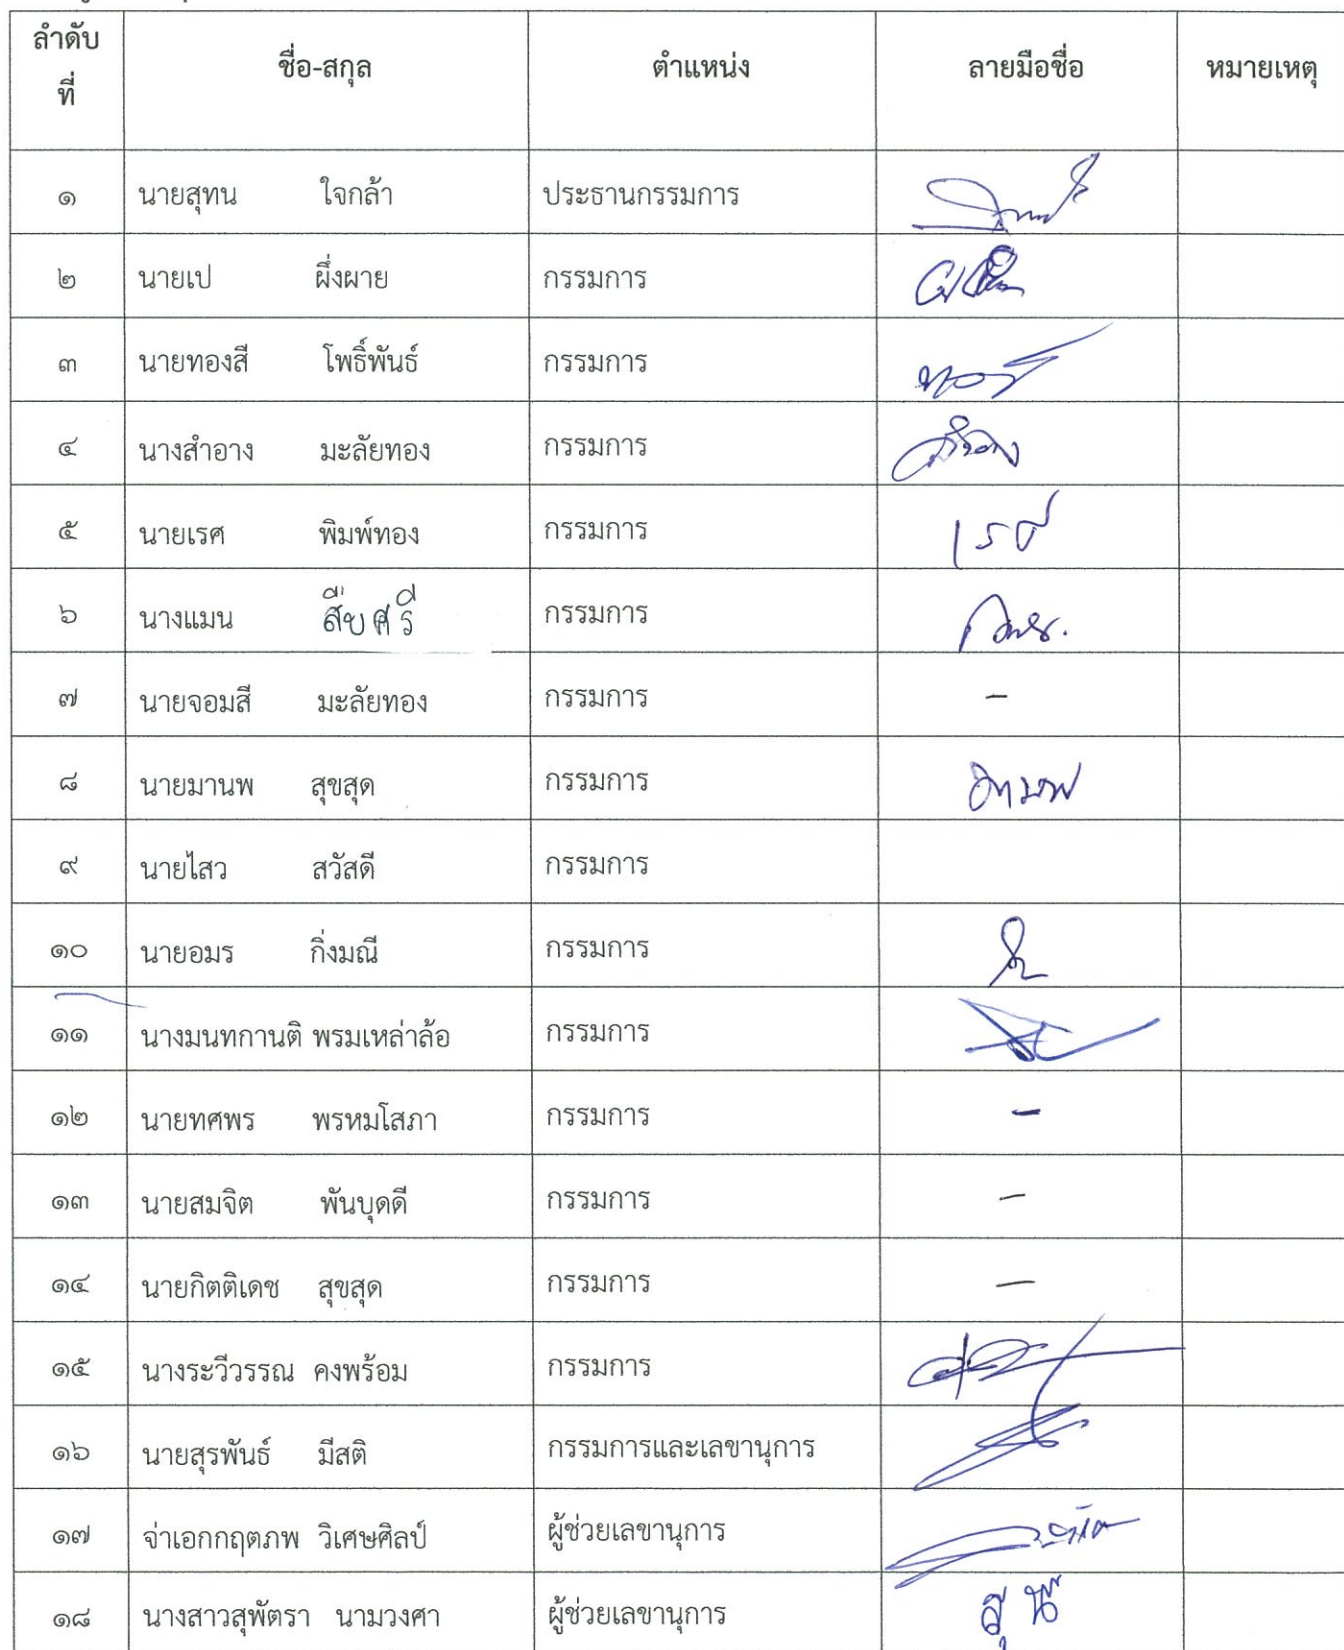 ลำดับ
ที่
ชื่อ-สกุล ตำแหน่ง ลายมือชื่อ หมายเหตุ
๑ นายสุทน ใจกล้า ประธานกรรมการ
๒ นายเป ผึ่งผาย กรรมการ
๓ นายทองสี โพธิ์พันธ์ กรรมการ
๔ นางสำอาง มะลัยทอง กรรมการ สำอาง
๕ นายเรศ พิมพ์ทอง กรรมการ เรศ
๖ นางแมน สืบศรี กรรมการ
๗ นายจอมสี มะลัยทอง กรรมการ -
๘ นายมานพ สุขสุด กรรมการ มานพ
๙ นายไสว สวัสดี กรรมการ
๑๐ นายอมร กิ่งมณี กรรมการ
๑๑ นางมนทกานติ พรมเหล่าล้อ กรรมการ
๑๒ นายทศพร พรหมโสภา กรรมการ -
๑๓ นายสมจิต พันบุดดี กรรมการ -
๑๔ นายกิตติเดช สุขสุด กรรมการ -
๑๕ นางระวีวรรณ คงพร้อม กรรมการ
๑๖ นายสุรพันธ์ มีสติ กรรมการและเลขานุการ
๑๗ จ่าเอกกฤตภพ วิเศษศิลป์ ผู้ช่วยเลขานุการ
๑๘ นางสาวสุพัตรา นามวงศา ผู้ช่วยเลขานุการ